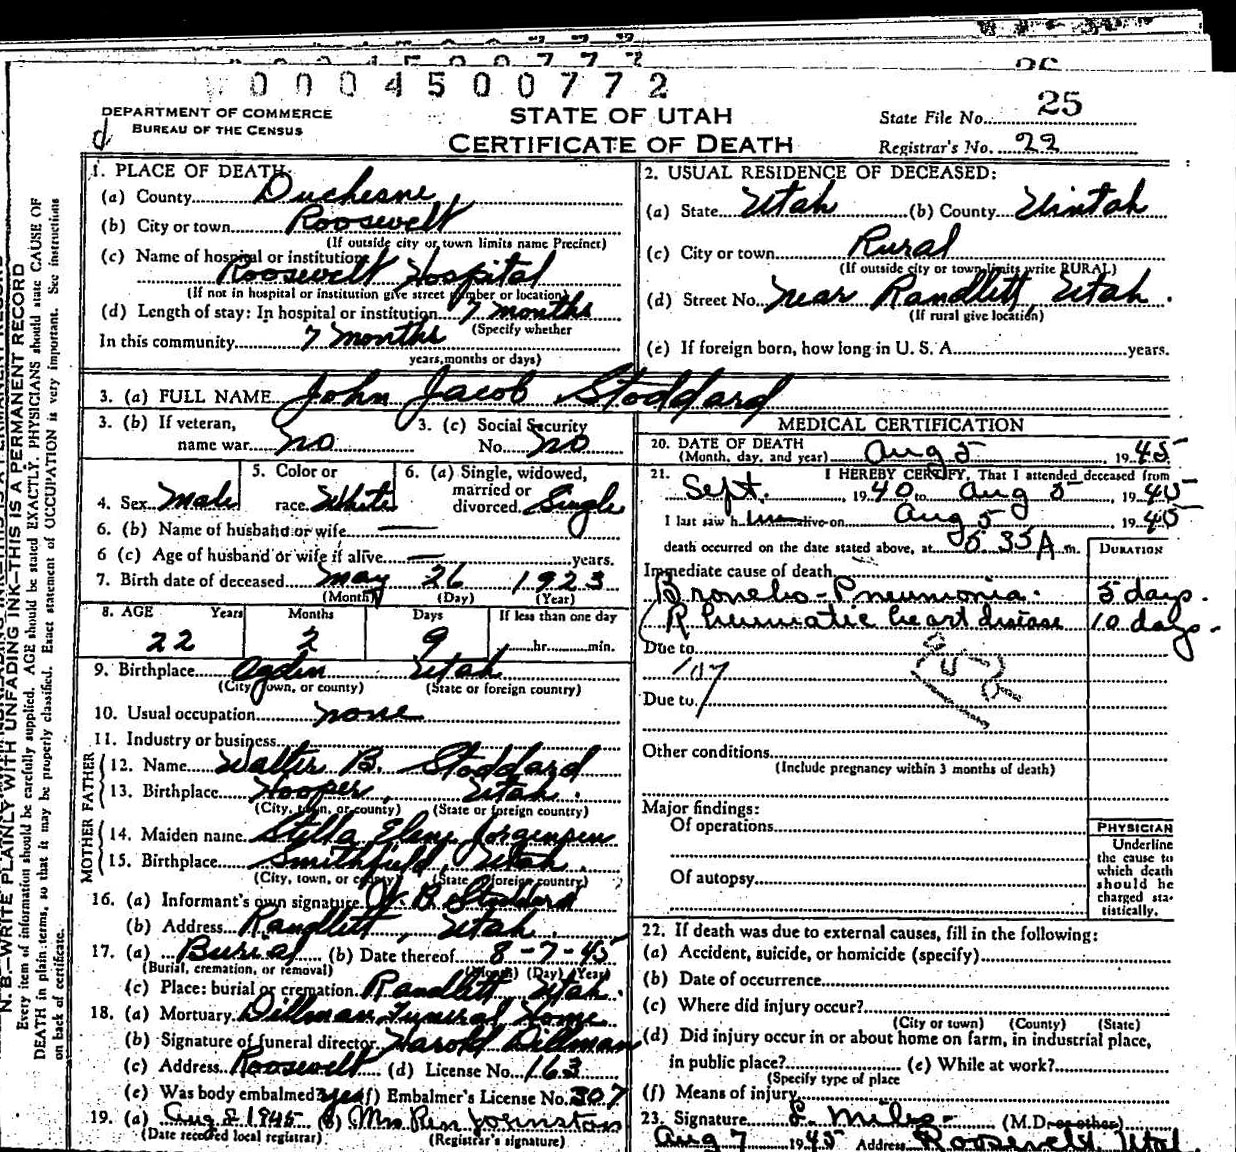 0004500772
DEPARTMENT OF COMMERCE
BUREAU OF THE CENSUS
STATE OF UTAH
CERTIFICATE OF DEATH
State File No. 25
Registrar's No. 22
1. PLACE OF DEATH:
(a) County Duchesne
(b) City or town Roosevelt
(If outside city or town limits name Precinct)
(c) Name of hospital or institution
Roosevelt Hospital
(If not in hospital or institution give street number or location)
(d) Length of stay: In hospital or institution 7 months
(Specify whether
In this community 7 months
years, months or days)
2. USUAL RESIDENCE OF DECEASED:
(a) State Utah (b) County Uintah
(c) City or town Rural
(If outside city or town limits write RURAL)
(d) Street No. near Randlett, Utah.
(If rural give location)
(e) If foreign born, how long in U. S. A. years.
3. (a) FULL NAME John Jacob Stoddard
3. (b) If veteran, name war no
3. (c) Social Security No. no
4. Sex Male
5. Color or race White
6. (a) Single, widowed, married or divorced Single
6. (b) Name of husband or wife
6 (c) Age of husband or wife if alive years.
7. Birth date of deceased May 26 1923
(Month) (Day) (Year)
8. AGE Years Months Days If less than one day
22 2 9 hr. min.
9. Birthplace Ogden Utah
(City, town, or county) (State or foreign country)
10. Usual occupation none
11. Industry or business
FATHER
12. Name Walter B. Stoddard
13. Birthplace Hooper, Utah.
(City, town, or county) (State or foreign country)
MOTHER
14. Maiden name Stella Elene Jorgensen
15. Birthplace Smithfield, Utah.
(City, town, or county) (State or foreign country)
16. (a) Informant's own signature W. B. Stoddard
(b) Address Randlett, Utah.
17. (a) Burial (b) Date thereof 8-7-45
(Burial, cremation, or removal) (Month) (Day) (Year)
(c) Place: burial or cremation Randlett Utah.
18. (a) Mortuary Dillman Funeral Home
(b) Signature of funeral director Harold Dillman
(c) Address Roosevelt (d) License No. 163
(e) Was body embalmed? yes (f) Embalmer's License No. 307
19. (a) Aug 8 1945 (b) Mrs Ren Johnston
(Date received local registrar) (Registrar's signature)
MEDICAL CERTIFICATION
20. DATE OF DEATH
(Month, day, and year) Aug 5 1945
21. I HEREBY CERTIFY, That I attended deceased from
Sept. 1940 to Aug 5 1945
I last saw him alive on Aug 5 1945
death occurred on the date stated above, at 5 35 A m.
DURATION
Immediate cause of death
Broncho-Pneumonia. 5 days.
Rheumatic heart disease 10 days.
Due to
107
Due to
Other conditions
(Include pregnancy within 3 months of death)
Major findings:
Of operations
Of autopsy
PHYSICIAN
Underline
the cause to
which death
should be
charged sta-
tistically.
22. If death was due to external causes, fill in the following:
(a) Accident, suicide, or homicide (specify)
(b) Date of occurrence
(c) Where did injury occur?
(City or town) (County) (State)
(d) Did injury occur in or about home on farm, in industrial place,
in public place? (e) While at work?
(Specify type of place
(f) Means of injury
23. Signature L. Miles (M.D. or other)
Aug 7 1945 Address Roosevelt, Utah.
N. B.—WRITE PLAINLY WITH UNFADING INK—THIS IS A PERMANENT RECORD
Every item of information should be carefully supplied. AGE should be stated EXACTLY. PHYSICIANS should state CAUSE OF
DEATH in plain terms, so that it may be properly classified. Exact statement of OCCUPATION is very important. See instructions
on back of certificate.